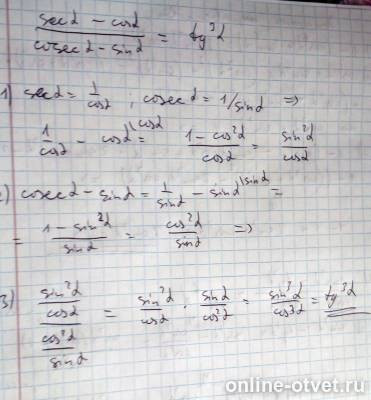 (sec α − cos α) / (cosec α − sin α) = tg³α
1) sec α = 1/cos α ; cosec α = 1/sin α ⇒
1/cos α − cos α \cos α = (1 − cos²α)/cos α = sin²α/cos α
2) cosec α − sin α = 1/sin α − sin α \sin α =
= (1 − sin²α)/sin α = cos²α/sin α ⇒
3) (sin²α/cos α)/(cos²α/sin α) = sin²α/cos α · sin α/cos²α = sin³α/cos³α = tg³α
online-otvet.ru